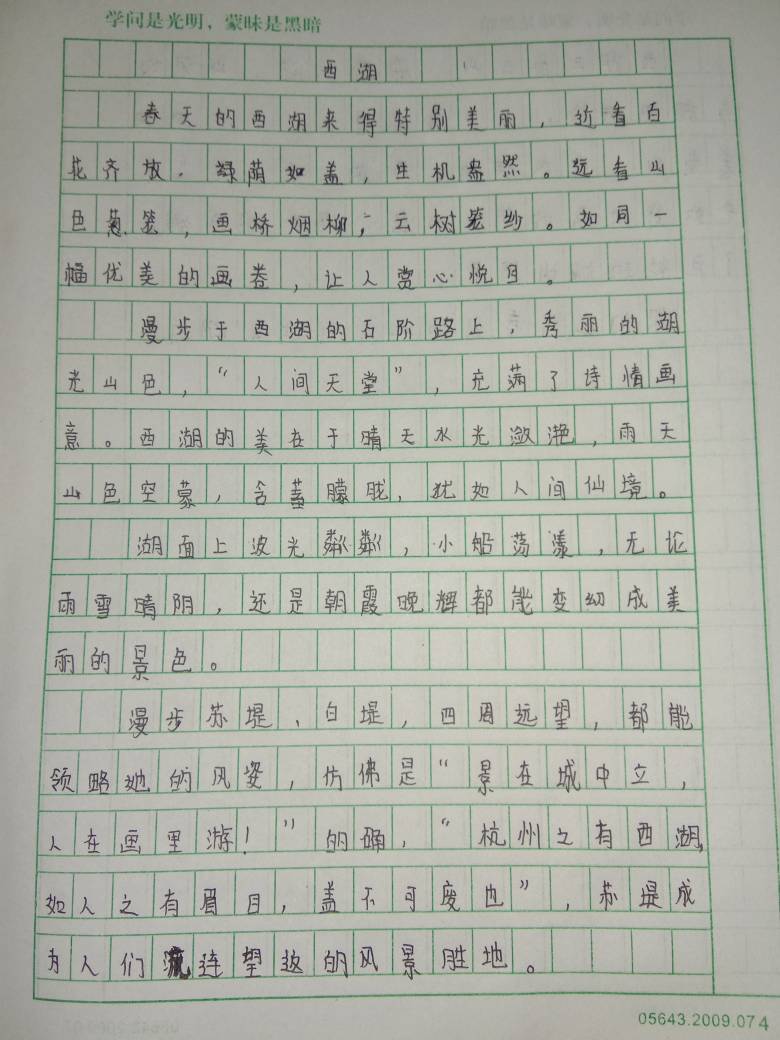 学问是光明，蒙昧是黑暗
西湖
春天的西湖来得特别美丽，近看百
花齐放．绿荫如盖，生机盎然。远看山
色葱笼，画桥烟柳，云树笼纱。如同一
幅优美的画卷，让人赏心悦目。
漫步于西湖的石阶路上，秀丽的湖
光山色，“人间天堂”，充满了诗情画
意。西湖的美在于晴天水光潋滟，雨天
山色空蒙，含蓄朦胧，犹如人间仙境。
湖面上波光粼粼，小船荡漾，无论
雨雪晴阴，还是朝霞晚辉都能变幻成美
丽的景色。
漫步苏堤、白堤，四周远望，都能
领略她的风姿，仿佛是“景在城中立，
人在画里游！”的确，“杭州之有西湖，
如人之有眉目，盖不可废也”，苏堤成
为人们流连望返的风景胜地。
05643.2009.074